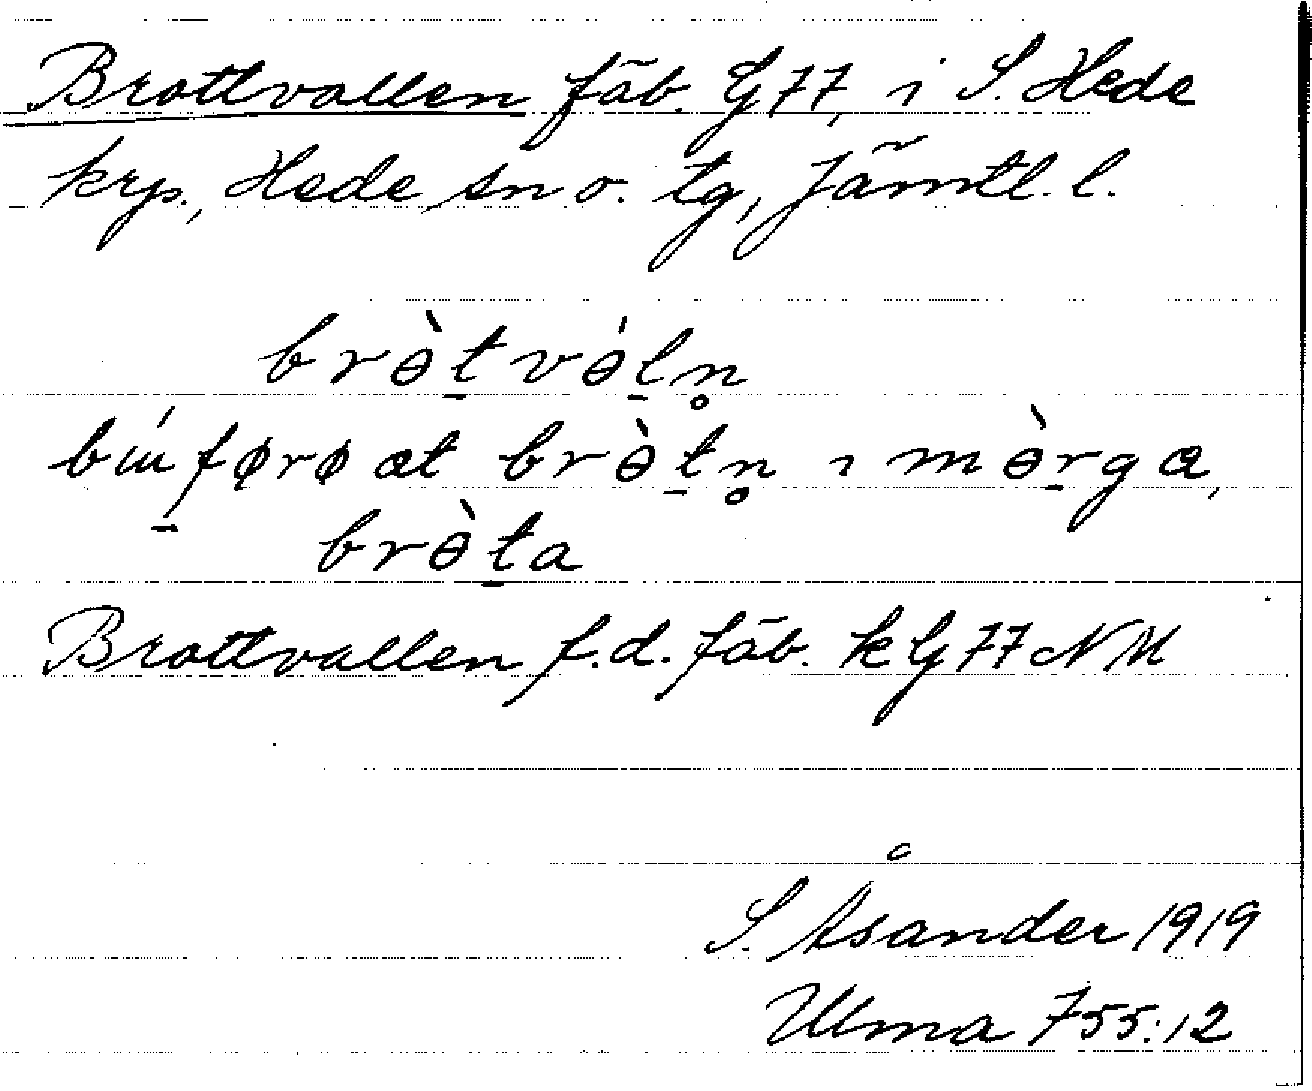 Brottvallen fäb. G77, i S. Hede
krp., Hede sn o. tg, Jämtl. l.
brɵ̀t̠vɵ́l̠n̥
brɵ̀t̠n̥ ı mɵ̀r̠ga,
brɵ̀t̠a
Brottvallen f.d. fäb. kG77 NM
S. Åsander 1919
Ulma 755:12